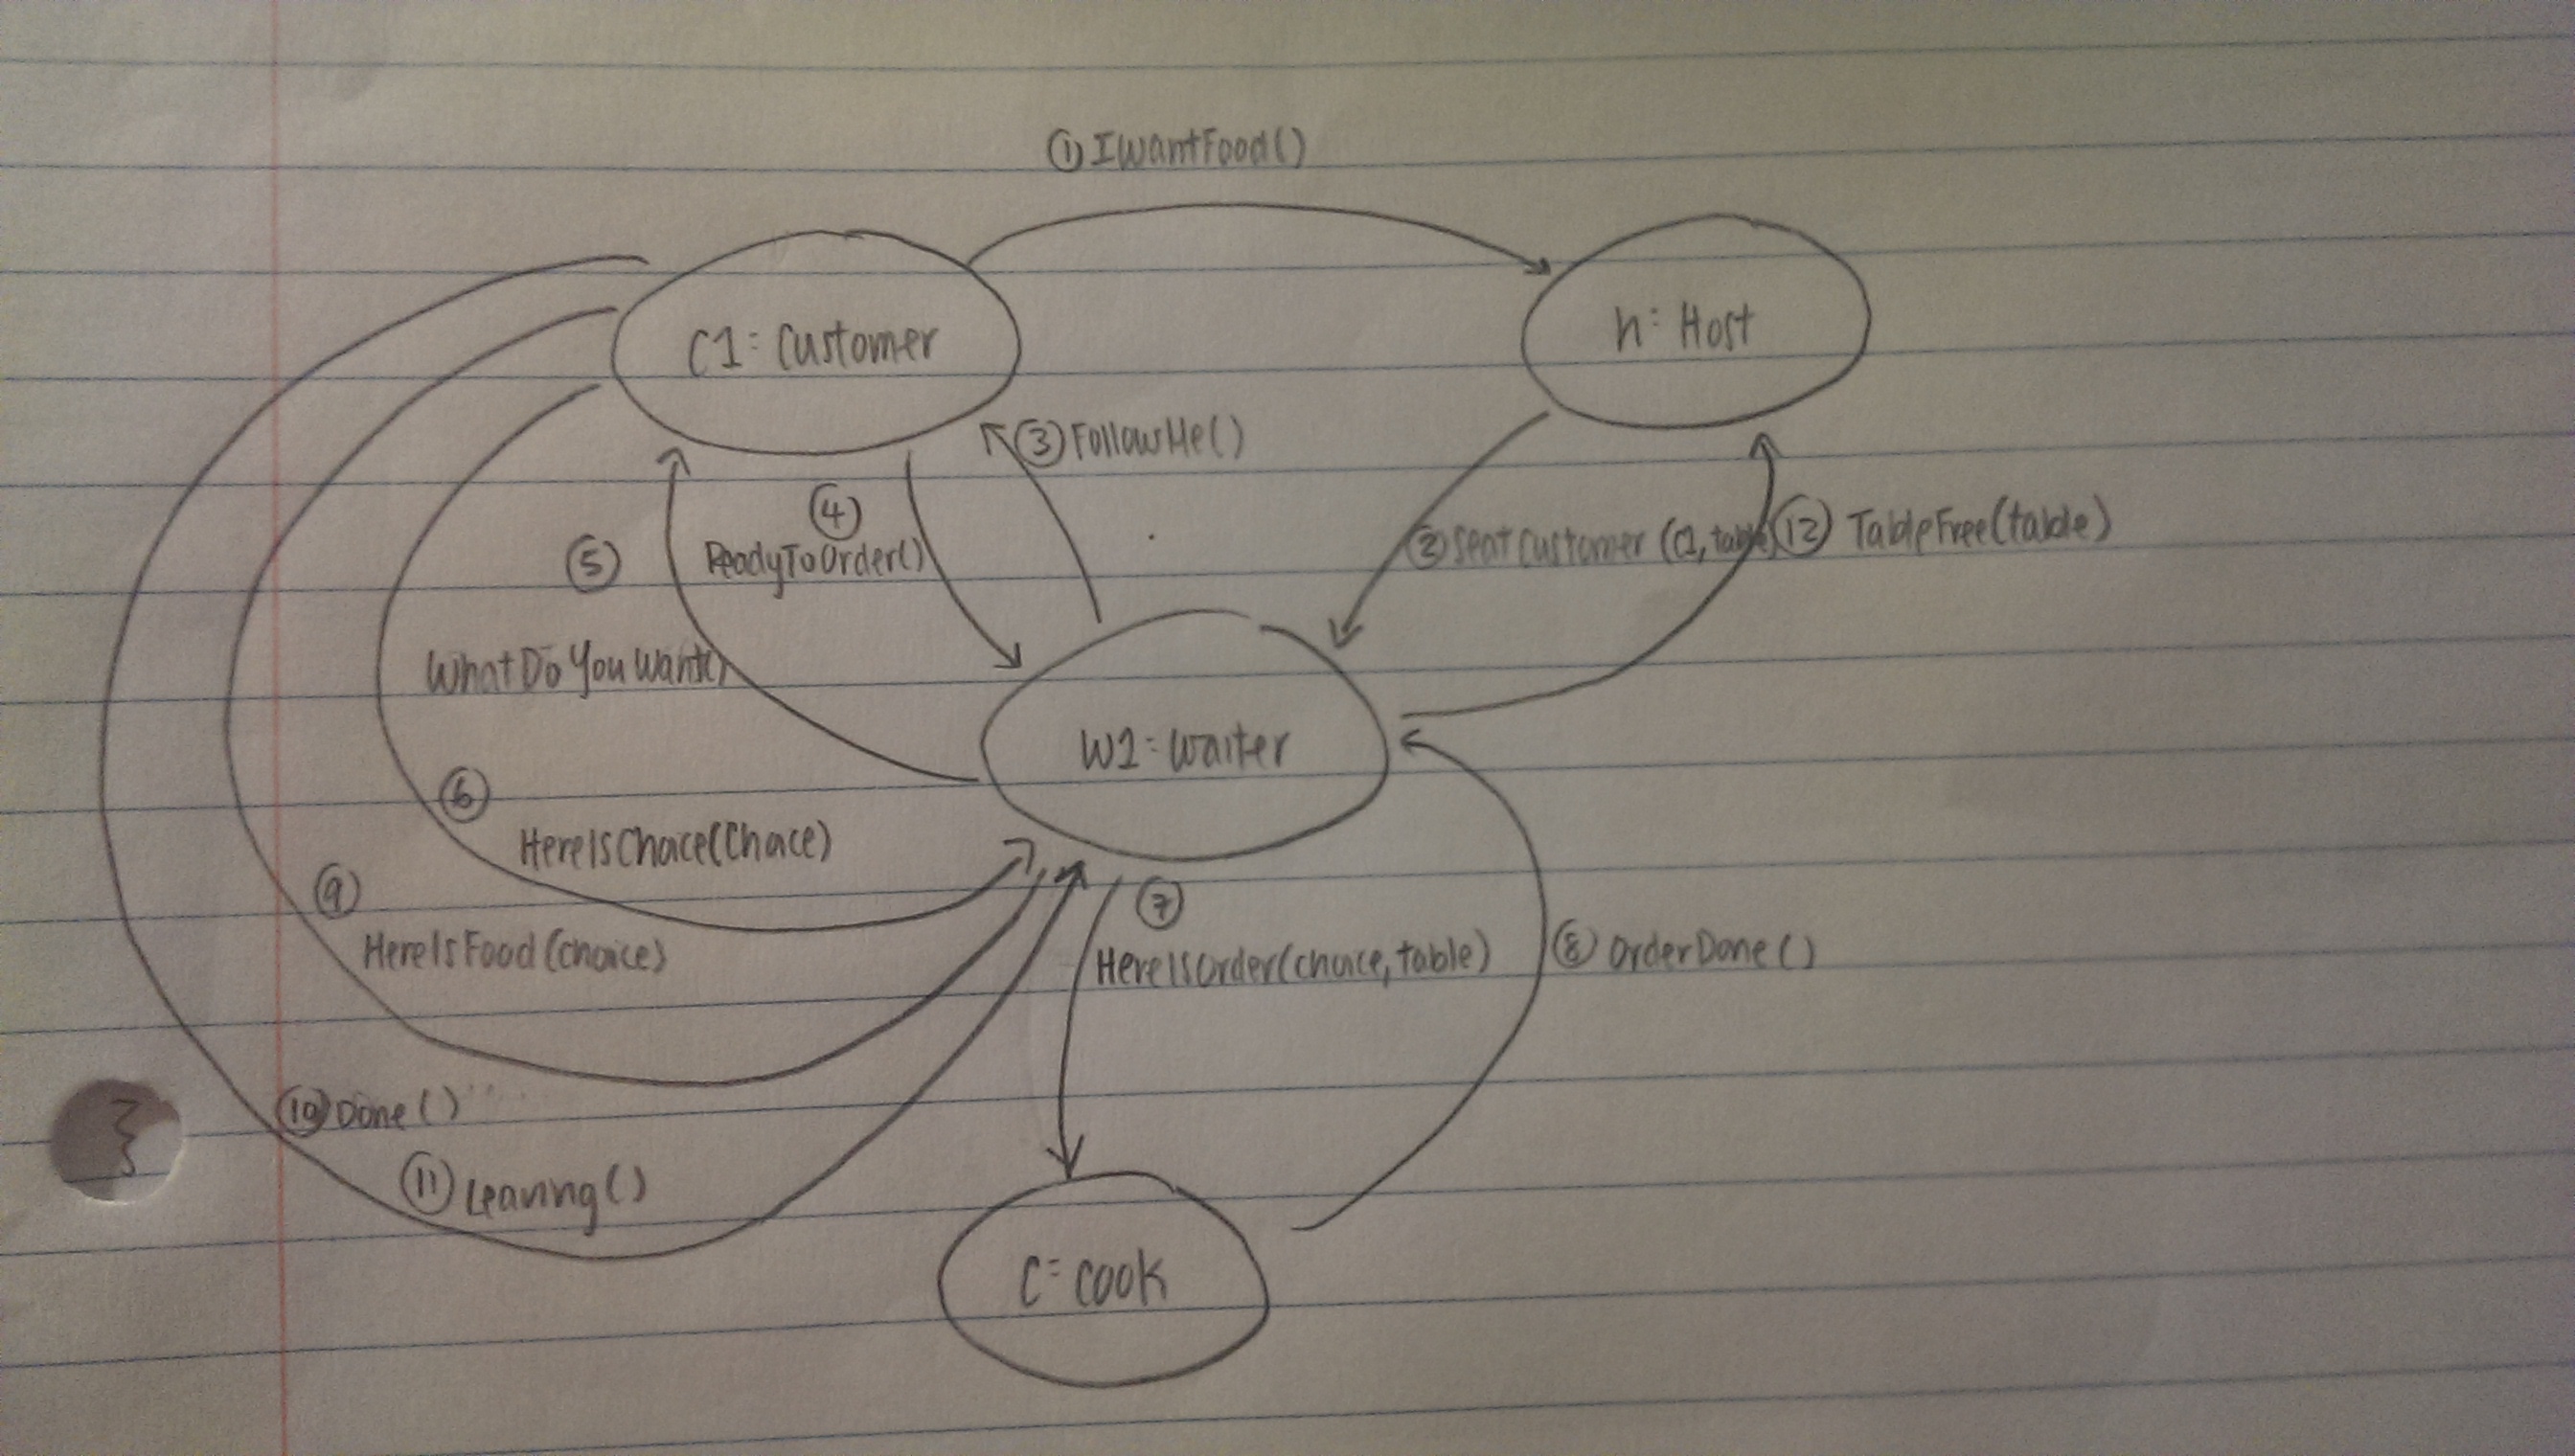 ① IWantFood()
C1: Customer
h: Host
③ FollowMe()
④
ReadyToOrder()
② SeatCustomer (C1, table)
⑫ TableFree(table)
⑤
WhatDoYouWant()
W1: Waiter
⑥
HereIsChoice(Choice)
⑦
HereIsOrder(choice, table)
⑧ OrderDone()
⑨
HereIsFood(choice)
⑩ Done()
⑪ Leaving()
C: Cook